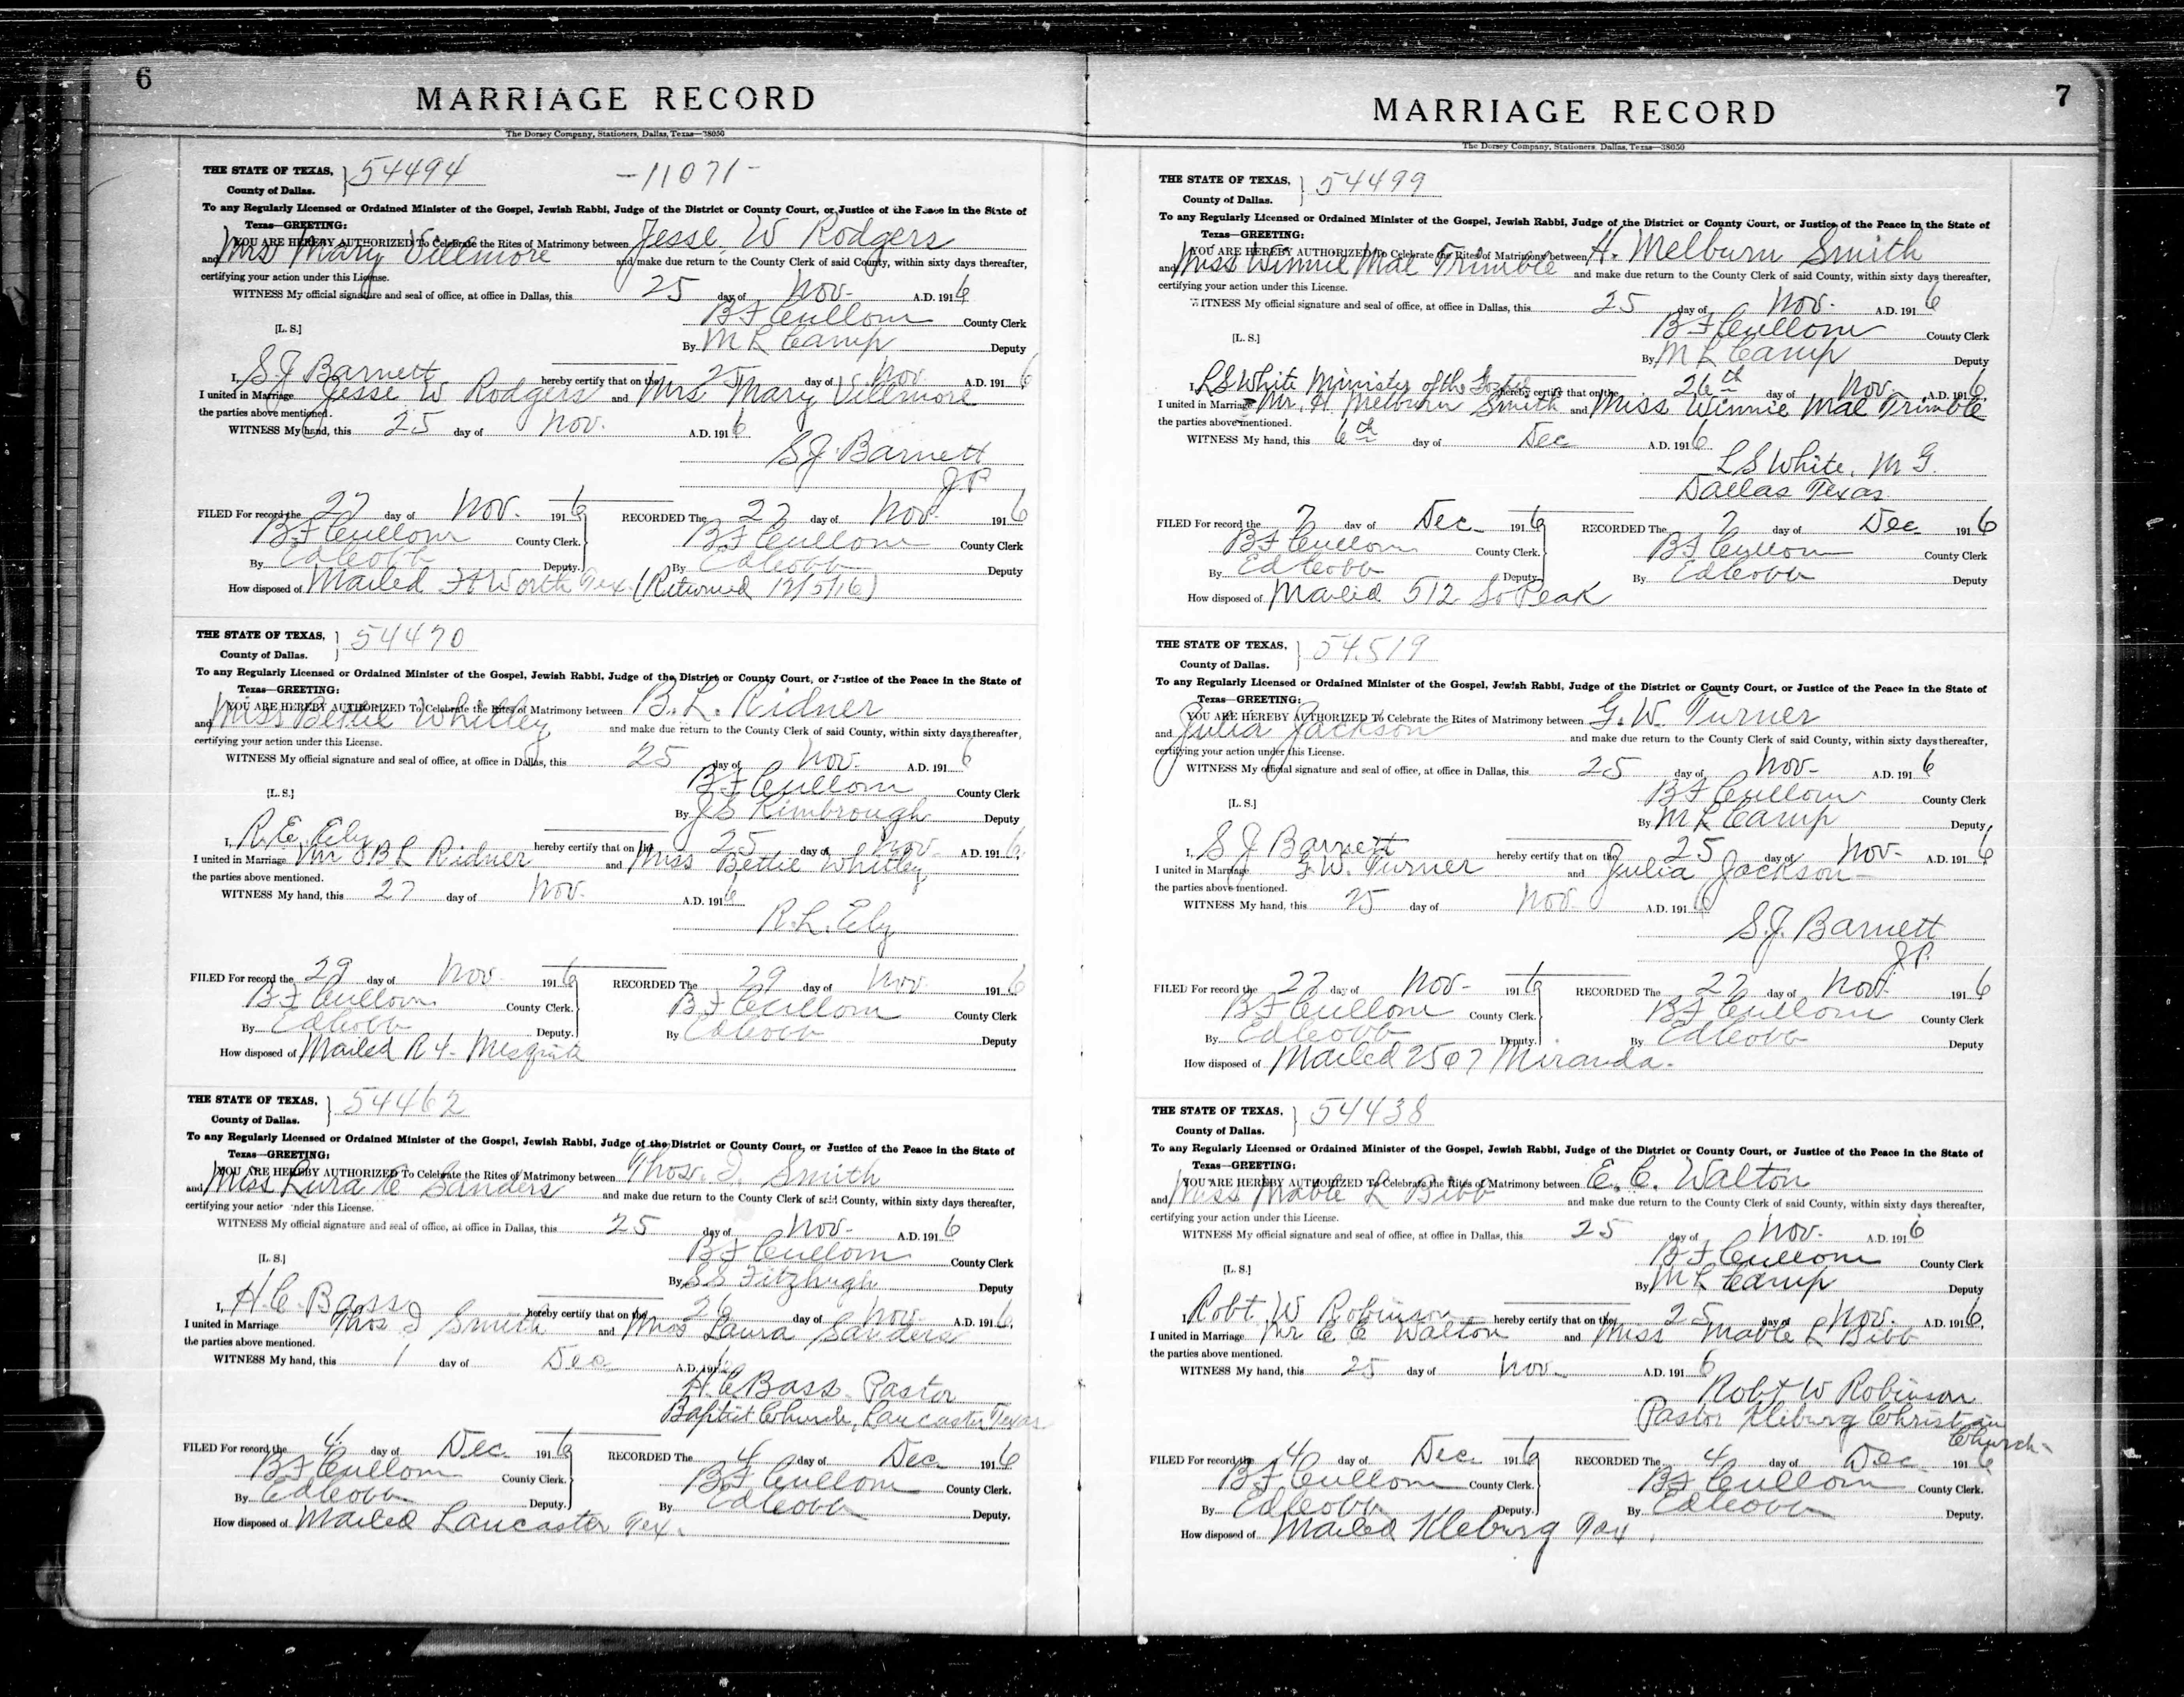 6
MARRIAGE RECORD
The Dorsey Company, Stationers, Dallas, Texas—38050
THE STATE OF TEXAS, 54494 -11071-
County of Dallas.
To any Regularly Licensed or Ordained Minister of the Gospel, Jewish Rabbi, Judge of the District or County Court, or Justice of the Peace in the State of
Texas—GREETING:
YOU ARE HEREBY AUTHORIZED To Celebrate the Rites of Matrimony between Jesse W Rodgers
and Mrs Mary Villmore and make due return to the County Clerk of said County, within sixty days thereafter,
certifying your action under this License.
WITNESS My official signature and seal of office, at office in Dallas, this 25 day of Nov. A.D. 1916
B F Cullom County Clerk
[L. S.]
By M L Camp Deputy
I, S. J Barnett hereby certify that on the 25 day of Nov. A.D. 1916
I united in Marriage Jesse W Rodgers and Mrs Mary Villmore
the parties above mentioned.
WITNESS My hand, this 25 day of Nov. A.D. 1916
S. J. Barnett
J P
FILED For record the 27 day of Nov. 1916 RECORDED The 27 day of Nov. 1916
B F Cullom County Clerk. B F Cullom County Clerk
By Ed Cobb Deputy. By Ed Cobb Deputy
How disposed of Mailed Ft Worth Tex. (Returned 12/5/16)
THE STATE OF TEXAS, 54470
County of Dallas.
To any Regularly Licensed or Ordained Minister of the Gospel, Jewish Rabbi, Judge of the District or County Court, or Justice of the Peace in the State of
Texas—GREETING:
YOU ARE HEREBY AUTHORIZED To Celebrate the Rites of Matrimony between B. L. Ridner
and Miss Bettie Whitley and make due return to the County Clerk of said County, within sixty days thereafter,
certifying your action under this License.
WITNESS My official signature and seal of office, at office in Dallas, this 25 day of Nov. A.D. 1916
B F Cullom County Clerk
[L. S.]
By J S Kimbrough Deputy
I, R. E. Ely hereby certify that on the 25 day of Nov. A.D. 1916.
I united in Marriage Mr B L Ridner and Miss Bettie Whitley
the parties above mentioned.
WITNESS My hand, this 27 day of Nov. A.D. 1916
R. L. Ely
FILED For record the 29 day of Nov. 1916 RECORDED The 29 day of Nov. 1916
B F Cullom County Clerk. B F Cullom County Clerk
By Ed Cobb Deputy. By Ed Cobb Deputy
How disposed of Mailed R 4- Mesquite
THE STATE OF TEXAS, 54462
County of Dallas.
To any Regularly Licensed or Ordained Minister of the Gospel, Jewish Rabbi, Judge of the District or County Court, or Justice of the Peace in the State of
Texas—GREETING:
YOU ARE HEREBY AUTHORIZED To Celebrate the Rites of Matrimony between Thos. J. Smith
and Miss Lura E Sanders and make due return to the County Clerk of said County, within sixty days thereafter,
certifying your action under this License.
WITNESS My official signature and seal of office, at office in Dallas, this 25 day of Nov. A.D. 1916
B F Cullom County Clerk
[L. S.]
By S S Fitzhugh Deputy
I, H. C. Bass hereby certify that on the 26 day of Nov. A.D. 1916.
I united in Marriage Thos J Smith and Miss Laura Sanders
the parties above mentioned.
WITNESS My hand, this 1 day of Dec A.D. 1916
H. C Bass. Pastor
Baptist Church, Lancaster Texas
FILED For record the 4 day of Dec. 1916 RECORDED The 4 day of Dec 1916
B F Cullom County Clerk. B F Cullom County Clerk.
By Ed Cobb Deputy. By Ed Cobb Deputy.
How disposed of Mailed Lancaster Tex.
7
MARRIAGE RECORD
The Dorsey Company, Stationers, Dallas, Texas—38050
THE STATE OF TEXAS, 54499
County of Dallas.
To any Regularly Licensed or Ordained Minister of the Gospel, Jewish Rabbi, Judge of the District or County Court, or Justice of the Peace in the State of
Texas—GREETING:
YOU ARE HEREBY AUTHORIZED To Celebrate the Rites of Matrimony between H. Melburn Smith
and Miss Winnie Mae Trimble and make due return to the County Clerk of said County, within sixty days thereafter,
certifying your action under this License.
WITNESS My official signature and seal of office, at office in Dallas, this 25 day of Nov. A.D. 1916
B F Cullom County Clerk
[L. S.]
By M L Camp Deputy
I, L S White Minister of the Gospel hereby certify that on the 26th day of Nov. A.D. 1916,
I united in Marriage Mr. H. Melburn Smith and Miss Winnie Mae Trimble
the parties above mentioned.
WITNESS My hand, this 6th day of Dec A.D. 1916
L S White, M G.
Dallas Texas
FILED For record the 7 day of Dec. 1916 RECORDED The 7 day of Dec 1916
B F Cullom County Clerk. B F Cullom County Clerk
By Ed Cobb Deputy By Ed Cobb Deputy
How disposed of Mailed 512 So Peak
THE STATE OF TEXAS, 54519
County of Dallas.
To any Regularly Licensed or Ordained Minister of the Gospel, Jewish Rabbi, Judge of the District or County Court, or Justice of the Peace in the State of
Texas—GREETING:
YOU ARE HEREBY AUTHORIZED To Celebrate the Rites of Matrimony between G. W. Turner
and Julia Jackson and make due return to the County Clerk of said County, within sixty days thereafter,
certifying your action under this License.
WITNESS My official signature and seal of office, at office in Dallas, this 25 day of Nov- A.D. 1916
B F Cullom County Clerk
[L. S.]
By M L Camp Deputy
I, S J Barnett hereby certify that on the 25 day of Nov- A.D. 1916
I united in Marriage G. W. Turner and Julia Jackson
the parties above mentioned.
WITNESS My hand, this 25 day of Nov. A.D. 1916
S. J. Barnett
J P.
FILED For record the 27 day of Nov- 1916 RECORDED The 27 day of Nov. 1916
B F Cullom County Clerk. B F Cullom County Clerk
By Ed Cobb Deputy. By Ed Cobb Deputy
How disposed of Mailed 2507 Miranda.
THE STATE OF TEXAS, 54438
County of Dallas.
To any Regularly Licensed or Ordained Minister of the Gospel, Jewish Rabbi, Judge of the District or County Court, or Justice of the Peace in the State of
Texas—GREETING:
YOU ARE HEREBY AUTHORIZED To Celebrate the Rites of Matrimony between E. C. Walton
and Miss Mable L Bibb and make due return to the County Clerk of said County, within sixty days thereafter,
certifying your action under this License.
WITNESS My official signature and seal of office, at office in Dallas, this 25 day of Nov. A.D. 1916
B F Cullom County Clerk
[L. S.]
By M L Camp Deputy
I, Robt. W Robinson hereby certify that on the 25 day of Nov. A.D. 1916,
I united in Marriage Mr E C Walton and Miss Mable L Bibb
the parties above mentioned.
WITNESS My hand, this 25 day of Nov. A.D. 1916
Robt W Robinson
Pastor Kleburg Christian
Church-
FILED For record the 4 day of Dec. 1916 RECORDED The 4 day of Dec 1916
B F Cullom County Clerk. B F Cullom County Clerk.
By Ed Cobb Deputy. By Ed Cobb Deputy.
How disposed of Mailed Kleburg Tex.